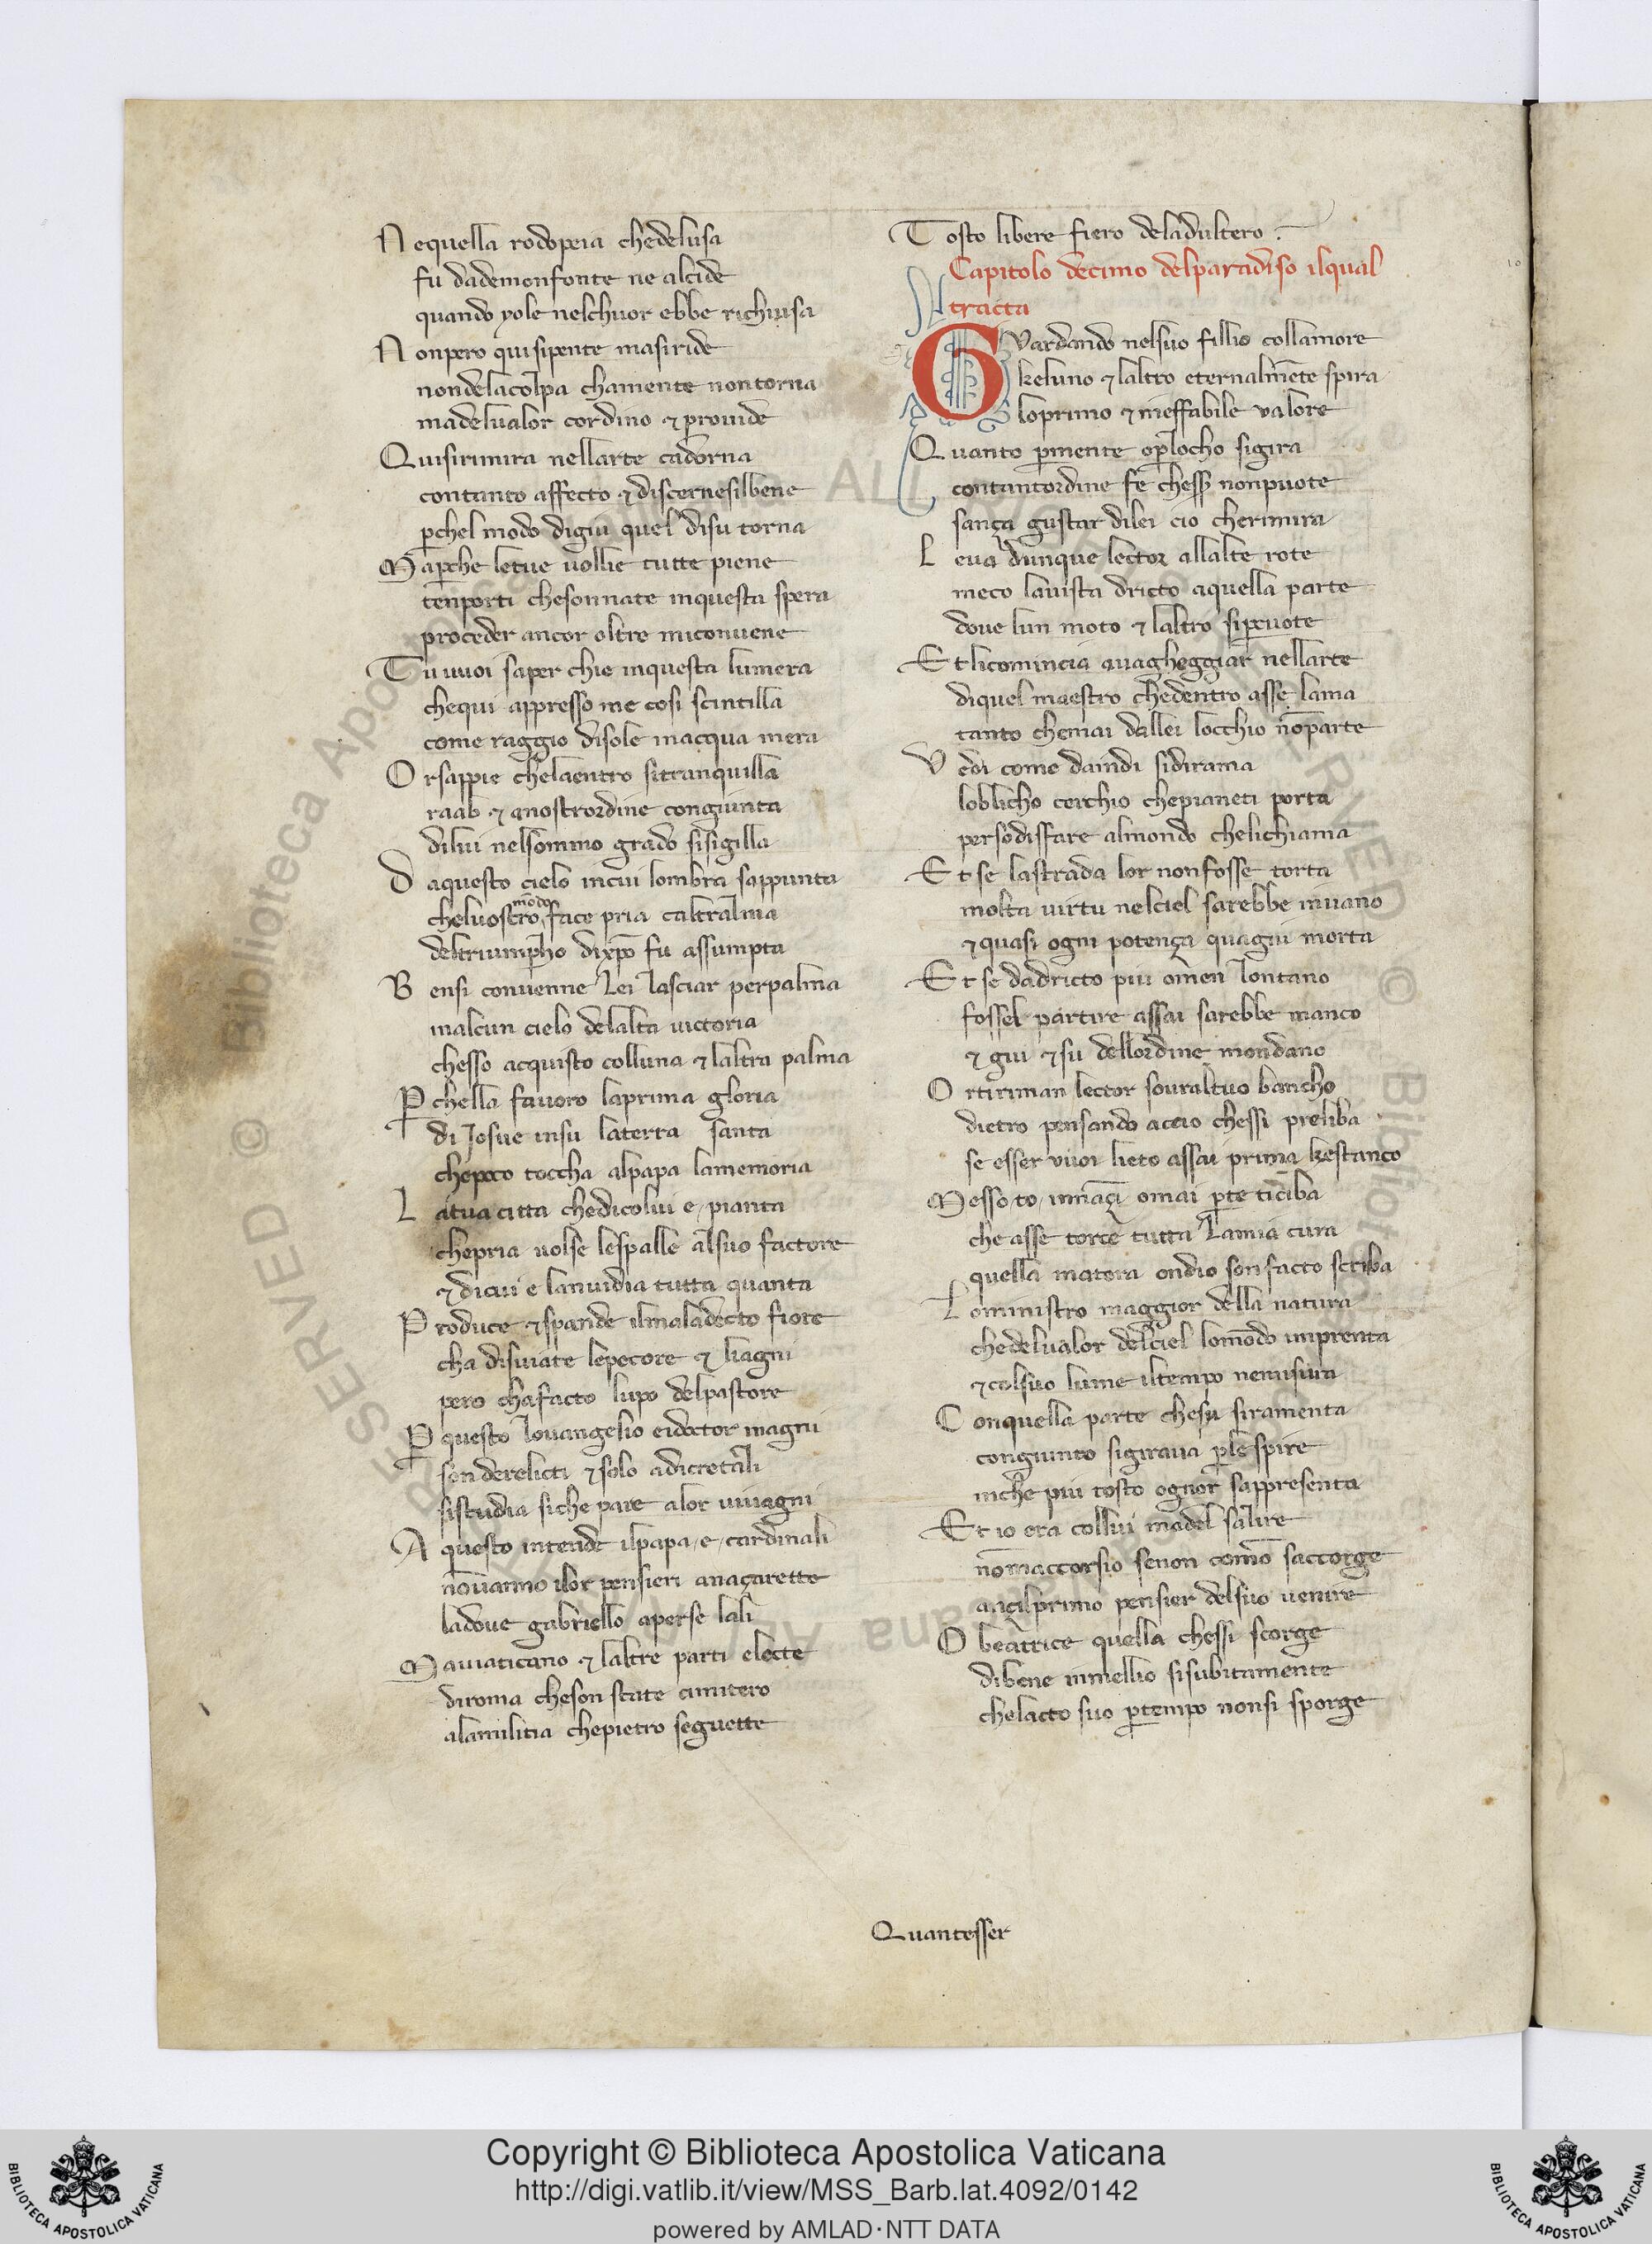 N equella rodopeia chedelusa
fu dademonfonte ne alcide
quando yole nelchuor ebbe richiusa
N onpero quisipente masiride
nondelacolpa chamente nontorna
madelualor cordino ⁊ prouide
Quisirimira nellarte cadorna
contanto affecto ⁊ discernesilbene
pchel modo digiu quel disu torna
M aperche letue uollie tutte piene
tenporti chesonnate inquesta spera
proceder ancor oltre miconuene
T u uuoi saper chie inquesta lumera
chequi appresso me cosi scintilla
come raggio disole inacqua mera
O rsappie chelaentro sitranquilla
raab ⁊ anostrordine congiunta
dilui nelsommo grado sisigilla
D aquesto cielo incui lombra sappunta
cheluostro mōdo face pria caltralma
deltriumpho dixpō fu assumpta
B ensi conuenne lei lasciar perpalma
inalcun cielo delalta uictoria
chesso acquisto colluna ⁊ laltra palma
P chella fauoro laprima gloria
di Josue insu laterra santa
chepoco toccha alpapa lamemoria
L atua citta chedicolui e, pianta
chepria uolse lespalle alsuo factore
⁊ dicui e lanuidia tutta quanta
P roduce ⁊ spande ilmaladecto fiore
cha disuiate lepecore ⁊ liagni
pero chafacto lupo delpastore
P questo louangelio eidoctor magni
son derelicti ⁊ solo adicretali
sistudia siche pare alor uiuagni
A questo intende ilpapa, e, cardinali
nōuanno ilor pensieri anaçarette
ladoue gabriello aperse lali
M auaticano ⁊ laltre parti electe
diroma cheson state cimitero
alamilitia chepietro seguette
T osto libere fiero deladultero .
Capitolo decimo delparadiso ilqual
tracta
G Vardando nelsuo fillio collamore
keluno ⁊ laltro eternalmēte spira
loprimo ⁊ ineffabile valore
Quanto pmente oplocho sigira
contantordine fe chessi nonpuote
sança gustar dilei cio cherimira
L eua dunque lector allalte rote
meco lauista dricto aquella parte
doue lun moto ⁊ laltro sipcuote
E t licomincia auagheggiar nellarte
diquel maestro chedentro asse lama
tanto chemai dallei locchio nōparte
V edi come daindi sidirama
loblicho cerchio chepianeti porta
persodisfare almondo chelichiama
E t se lastrada lor nonfosse torta
molta uirtu nelciel sarebbe inuano
⁊ quasi ogni potença quagiu morta
E t se dadricto piu omen lontano
fossel partire assai sarebbe manco
⁊ giu ⁊ su dellordine mondano
O rtiriman lector souraltuo bancho
dietro pensando accio chessi preliba
se esser vuoi lieto assai prima kestanco
M esso to, innāçi omai pte ticiba
che asse torce tutta lamia cura
quella matera ondio son facto scriba
L oministro maggior della natura
chedelualor delciel lomōdo imprenta
⁊ colsuo lume iltempo nemisura
C onquella parte chesu siramenta
congiunto sigiraua ple spire
inche piu tosto ognor sappresenta
E t io era collui madel salire
nōmaccorsio senon comō saccorge
ançilprimo pensier delsuo uenire
O beatrice quella chessi scorge
dibene inmellio sisubitamente
chelacto suo ptempo nonsi sporge
Quantesser
Copyright © Biblioteca Apostolica Vaticana
http://digi.vatlib.it/view/MSS_Barb.lat.4092/0142
powered by AMLAD·NTT DATA